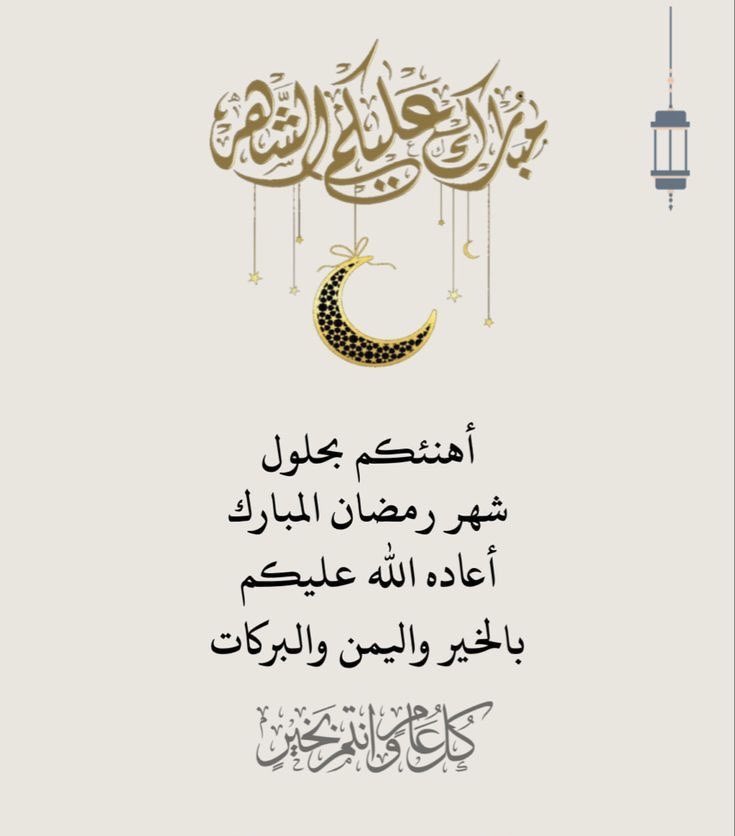 مبارك عليكم الشهر
أهنئكم بحلول
شهر رمضان المبارك
أعاده الله عليكم
بالخير واليمن والبركات
كُل عَامٍ وانتم بخيرٍ